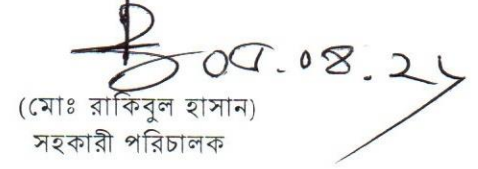 ০৫.০৪.২১
(মোঃ রাকিবুল হাসান)
সহকারী পরিচালক